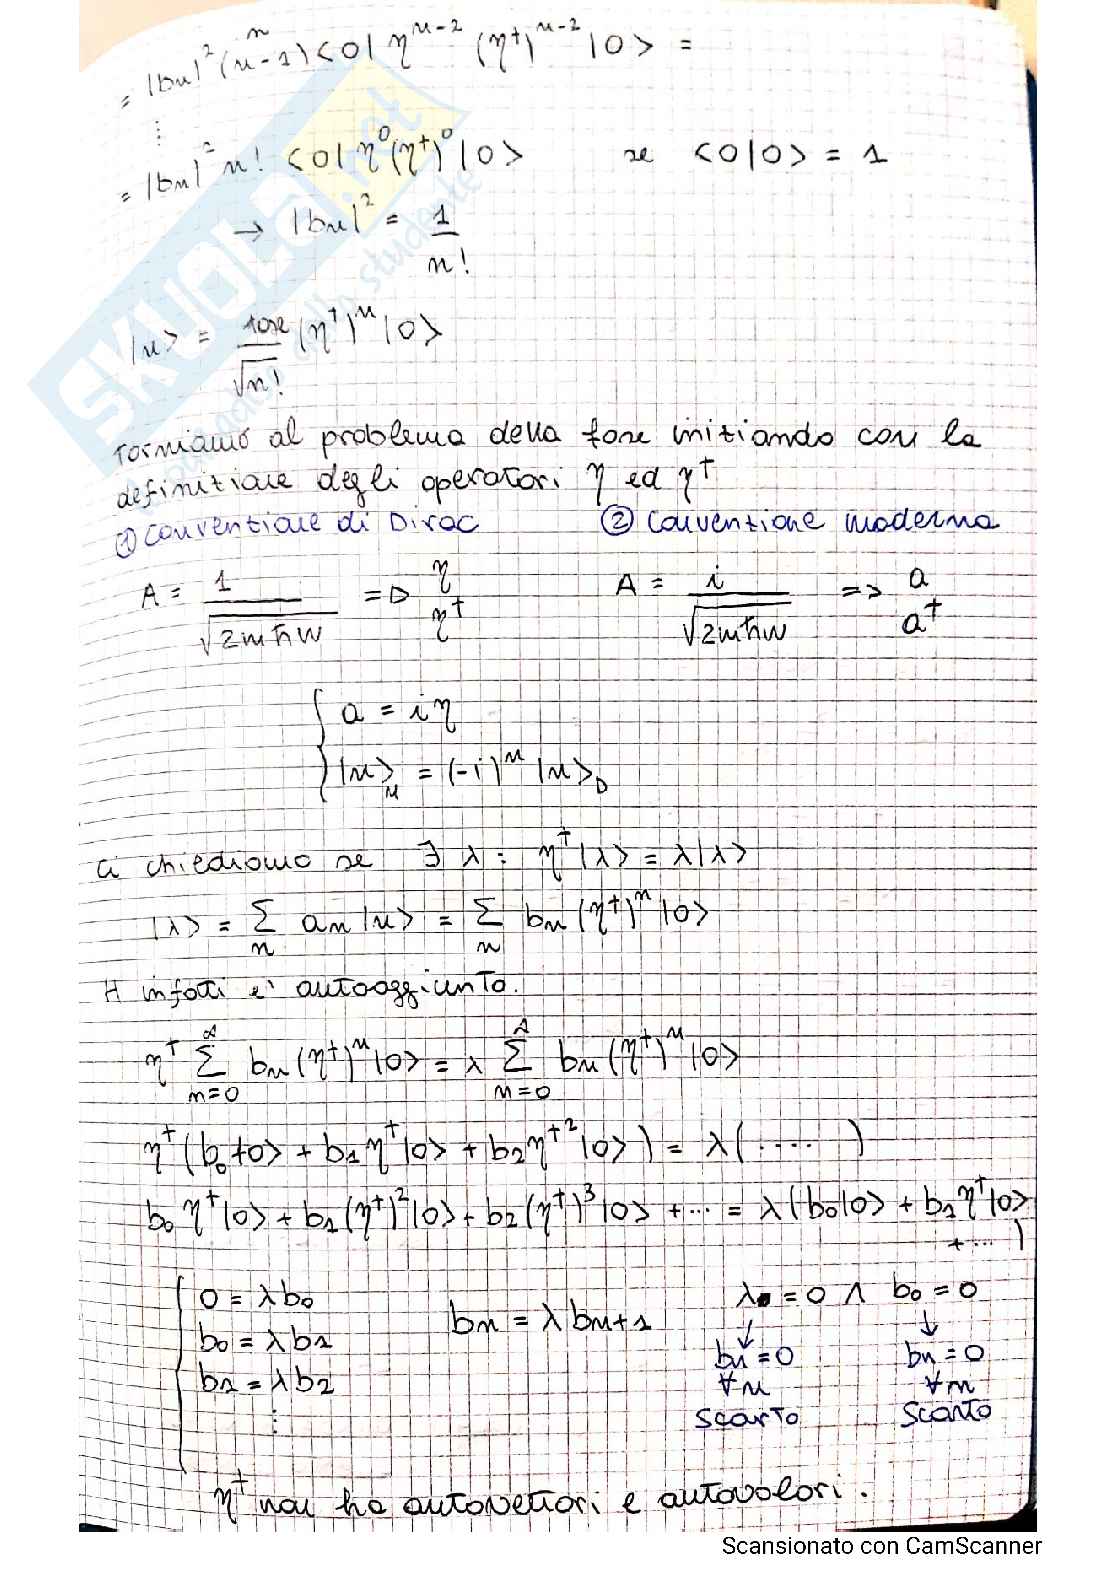 = |bn|² n(n-1) <0| η^(n-2) (η†)^(n-2) |0> =
⋮
= |bn|² n! <0| η⁰(η†)⁰ |0> se <0|0> = 1
→ |bn|² = 1/n!
|n> = fase/√n! (η†)^n |0>
Torniamo al problema della fase iniziando con la
definizione degli operatori η ed η†
① Convenzione di Dirac ② Convenzione moderna
A = 1/√2mħw => η η† A = i/√2mħw => a a†
{ a = iη
|n>_M = (-i)^n |n>_D
Ci chiediamo se ∃ λ : η†|λ> = λ|λ>
|λ> = Σ_n an |n> = Σ_n bn (η†)^n |0>
H infatti e' autoaggiunto.
η† Σ_{n=0}^∞ bn (η†)^n |0> = λ Σ_{n=0}^∞ bn (η†)^n |0>
η† (b₀ |0> + b₁ η†|0> + b₂ η†² |0>) = λ( ···· )
b₀ η†|0> + b₁ (η†)²|0> + b₂ (η†)³|0> + ··· = λ(b₀|0> + b₁ η†|0>
+ ··· )
{ 0 = λb₀ bn = λ bn+1 λ = 0 ∧ b₀ = 0
b₀ = λ b₁ ↓ ↓
b₁ = λ b₂ bn = 0 bn = 0
⋮ ∀n ∀n
scarto scarto
η† non ha autovettori e autovalori.
SKUOLA.net
Scansionato con CamScanner